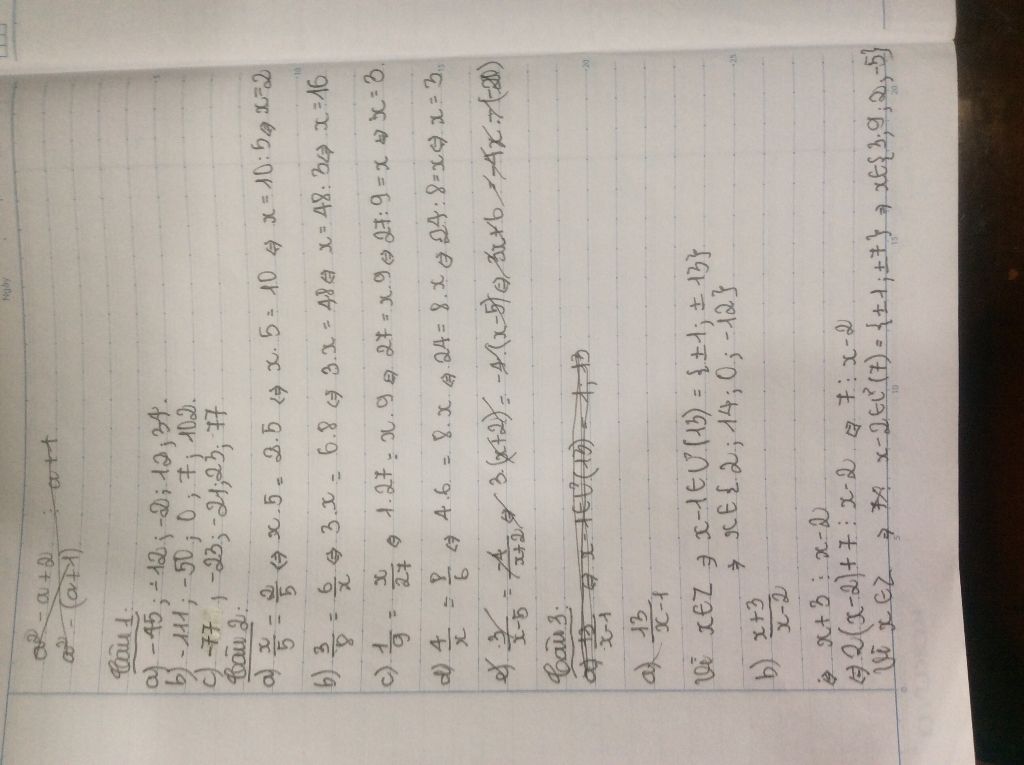 Ngày
a² - a + 2 ⋮ a + 1
a² - (a + 1)
Câu 1:
a) -45 ; -12 ; -2 ; 12 ; 34.
b) -111 ; -50 ; 0 ; 7 ; 102.
c) -77 ; -23 ; -21 ; 23 ; 77
Câu 2:
a) x/5 = 2/5 ⇔ x . 5 = 2.5 ⇔ x . 5 = 10 ⇔ x = 10 : 5 ⇔ x = 2
b) 3/8 = 6/x ⇔ 3.x = 6.8 ⇔ 3.x = 48 ⇔ x = 48 : 3 ⇔ x = 16
c) 1/9 = x/27 ⇔ 1.27 = x . 9 ⇔ 27 = x.9 ⇔ 27 : 9 = x ⇔ x = 3.
d) 4/x = 8/6 ⇔ 4.6 = 8.x ⇔ 24 = 8.x ⇔ 24 : 8 = x ⇔ x = 3
e) 3/x-5 = -4/x+2 ⇔ 3.(x+2) = -4.(x-5) ⇔ 3x+6 = -4x-(-20)
Câu 3:
a) 13/x-1 ⇔ x-1 ∈ Ư(13) = 1, 13
a) 13/x-1
Vì x ∈ Z ⇒ x-1 ∈ Ư(13) = {±1 ; ±13}
⇒ x ∈ {2 ; 14 ; 0 ; -12}
b) x+3/x-2
⇒ x+3 ⋮ x-2
⇔ 2(x-2)+7 ⋮ x-2 ⇔ 7 ⋮ x-2
Vì x ∈ Z ⇒ x-2 ∈ Ư(7) = {±1 ; ±7} ⇒ x ∈ {3, 9 ; 2, -5}